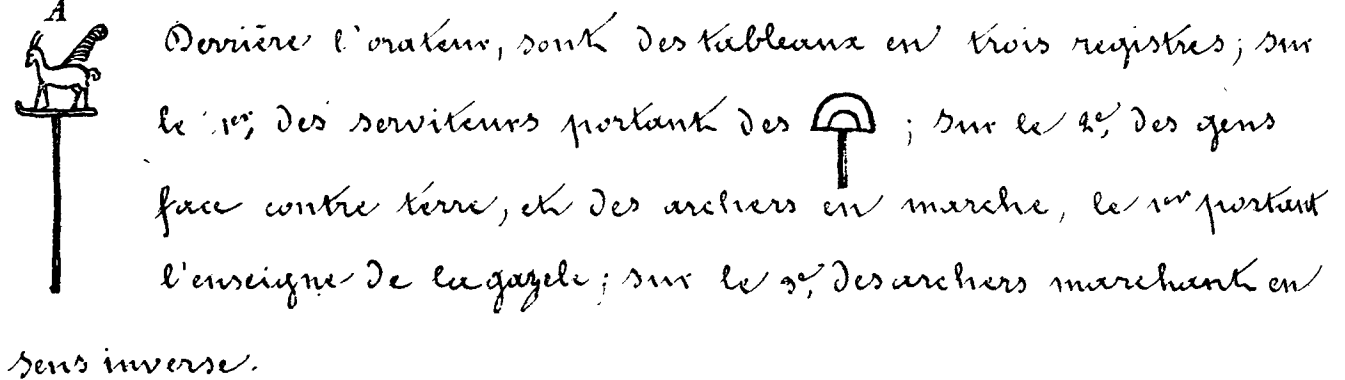 A
Derrière l'orateur, sont des tableaux en trois registres; sur
le 1er, des serviteurs portant des ; sur le 2e, des gens
face contre terre, et des archers en marche, le 1er portant
l'enseigne de la gazele; sur le 3e, des archers marchant en
sens inverse.